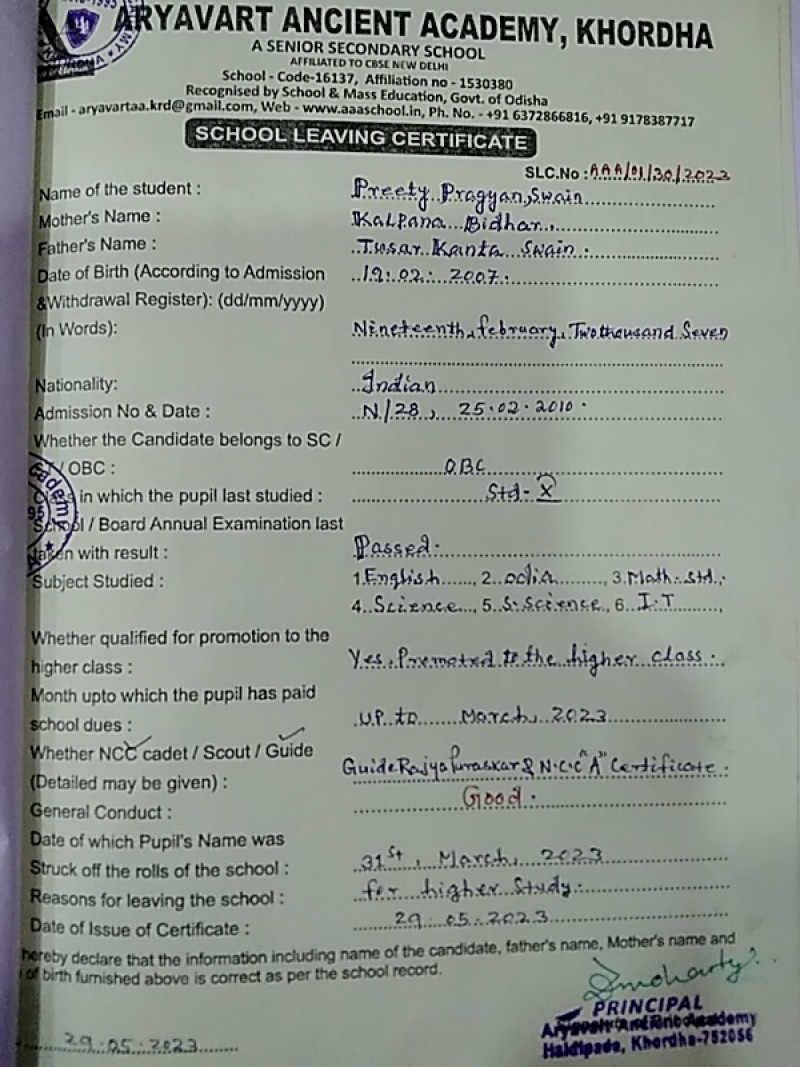 ARYAVART ANCIENT ACADEMY, KHORDHA
A SENIOR SECONDARY SCHOOL
AFFILIATED TO CBSE NEW DELHI
School - Code-16137, Affiliation no - 1530380
Recognised by School & Mass Education, Govt. of Odisha
Email - aryavartaa.krd@gmail.com, Web - www.aaaschool.in, Ph. No. - +91 6372866816, +91 9178387717
SCHOOL LEAVING CERTIFICATE
SLC.No : AAA/01/30/2023
Name of the student : Preety Pragyan Swain
Mother's Name : Kalpana Bidhar.
Father's Name : Tusar Kanta Swain.
Date of Birth (According to Admission 19.02.2007.
&Withdrawal Register): (dd/mm/yyyy)
(In Words): Nineteenth, february, Two thousand Seven
Nationality: Indian
Admission No & Date : N/28, 25.02.2010.
Whether the Candidate belongs to SC /
/ OBC : OBC
in which the pupil last studied : Std - X
School / Board Annual Examination last
taken with result : Passed.
Subject Studied : 1. English, 2. odia, 3. Math. Std.,
4. Science, 5. S. Science, 6. I.T,
Whether qualified for promotion to the
higher class : Yes. Promoted to the higher class.
Month upto which the pupil has paid
school dues : Up to March, 2023
Whether NCC cadet / Scout / Guide
(Detailed may be given) : Guide Rajya Puraskar & N.C.C "A" Certificate.
General Conduct : Good.
Date of which Pupil's Name was
Struck off the rolls of the school : 31st, March, 2023
Reasons for leaving the school : for higher Study.
Date of Issue of Certificate : 29.05.2023
hereby declare that the information including name of the candidate, father's name, Mother's name and
of birth furnished above is correct as per the school record.
PRINCIPAL
Aryavart Ancient Academy
Haldipada, Khordha-752056
29.05.2023